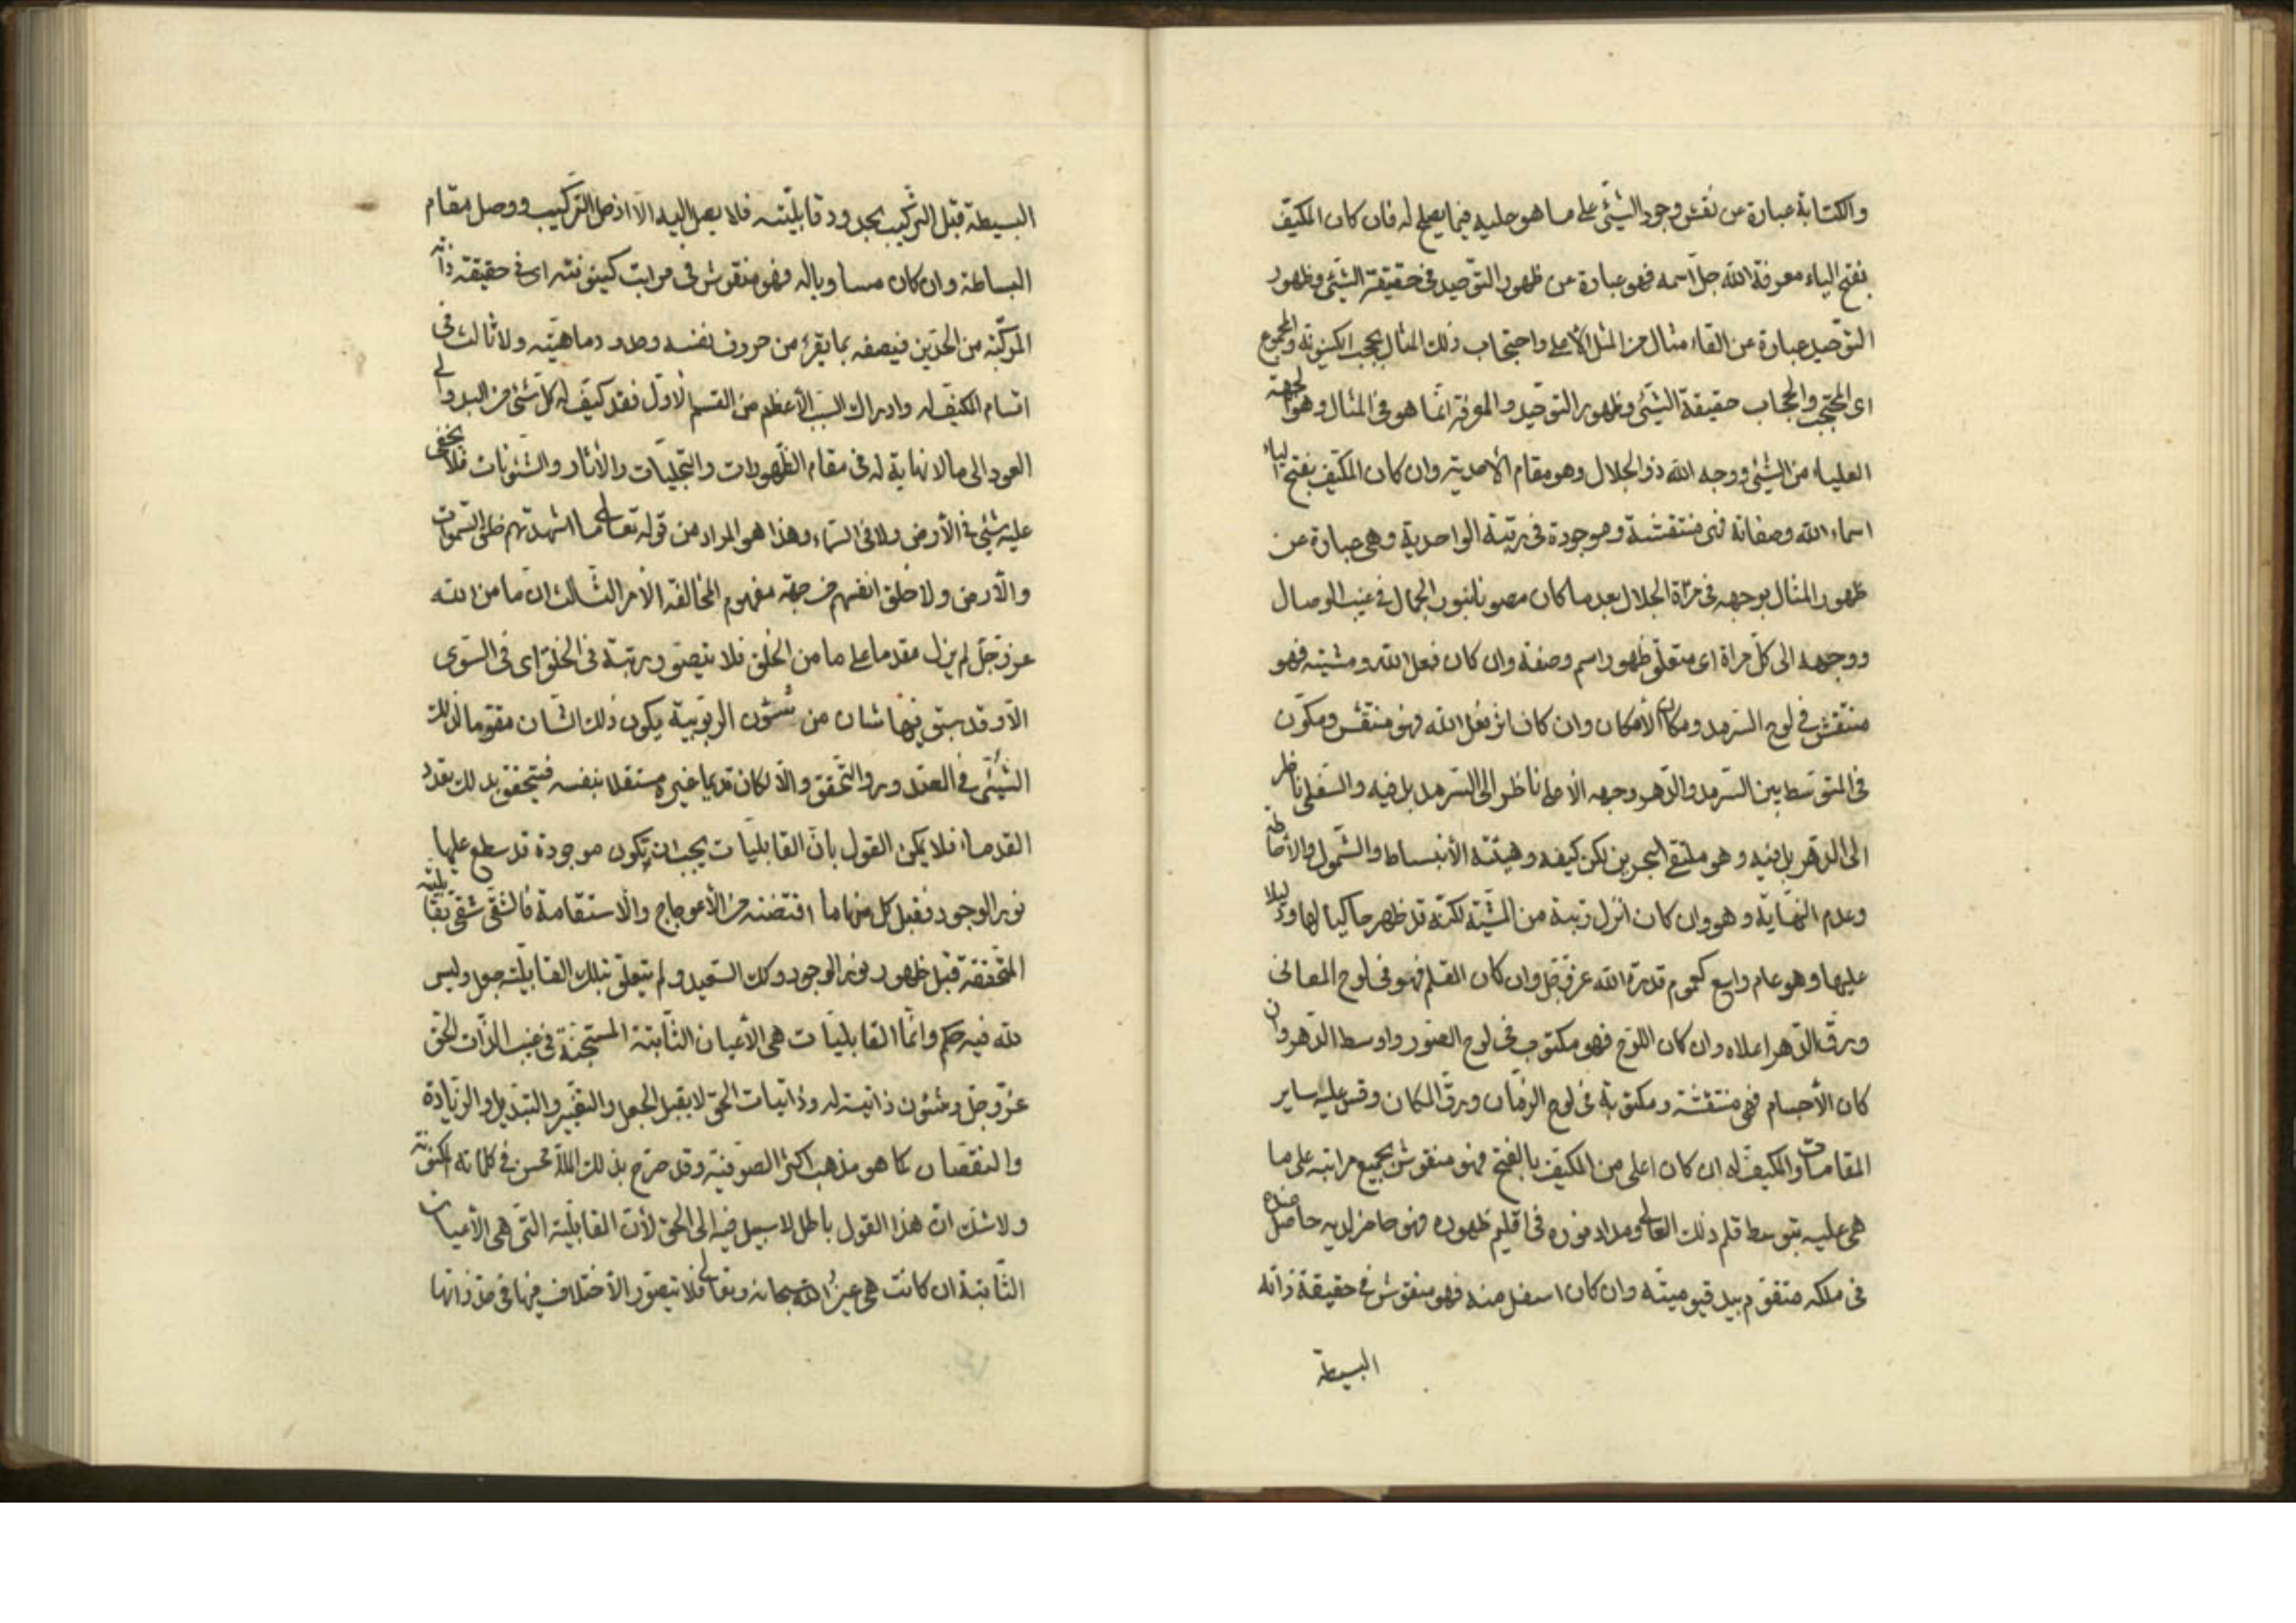 والكتابة عبارة عن نقش وجود الشيئ على ما هو عليه فيما يصلح له فان كان المكيّف
بفتح الياء معرفة الله جلّ اسمه فهو عبارة عن ظهور التوحيد في حقيقة الشيئ وظهور
التوحيد عبارة عن القاء مثال من المثل الأعلى واحتجاب ذلك المثال بحجب الكينونة والمجموع
اى المحتجب والحجاب حقيقة الشيئ وظهور التوحيد والمعرفة انما هو في المثال وهو الجهة
العليا من الشيئ ووجه الله ذو الجلال وهو مقام الأحدية وان كان المكيّف بفتح الياء
اسماء الله وصفاته فهى منتقشة وموجودة في رتبة الواحدية وهى عبارة عن
ظهور المثال بوجهه في مرآة الجلال بعد ما كان مصونا بنور الجمال في غيب الوصال
ووجهه الى كلّ مرآة اى متعلّق ظهور اسم وصفة وان كان فعل الله ومشيته فهو
منتقش في لوح السّرمد ومكان الأمكان وان كان اثر فعل الله فهو منتقش ومكوّن
في المتوسّط بين السّرمد والدّهر وجهه الأعلى ناظر الى السّرمد بل فيه والسّفلى ناظر
الى الدّهر بل فيه وهو ملتقى البحرين لكن كيفه وهيئته الأنبساط والشّمول والأحاطة
وعدم النّهاية وهو وان كان انزل رتبة من المشيّة لكنّه قد ظهر حاكيا لها ودليلا
عليها وهو عام واسع كعموم قدرة الله عزّ وجلّ وان كان القلم فهو في لوح المعانى
ورقّ الدّهر اعلاه وان كان اللوح فهو مكتوب في لوح الصّور واوسط الدّهر وان
كان الأجسام فهى منتقشة ومكتوبة في لوح الزّمان ورقّ المكان وقس عليه ساير
المقامات والمكيف له ان كان اعلى من المكيّف بالفتح فهو منقوش بجميع مراتبه على ما
هى عليه بتوسط قلم ذلك العالى ومداد نوره في اقليم ظهوره فهو حاضر لديه حاصل عنده
في ملكه متقوّم بيد قيوميته وان كان اسفل منه فهو منقوش في حقيقة ذاته
البسيطة
البسيطة قبل التركيب بحدود قابليّته فلا يصل اليه الّا اذ حلّ التركيب ووصل مقام
البساطة وان كان مساويا له فهو منقوش في مراتب كينونته اى في حقيقة ذاته
المركّبة من الحدّين فيصفه بما يقرء من حروف نفسه وحدود ماهيّته ولا ثالث في
اقسام المكيّف له وادراك السّبب الأعظم من القسم الأوّل فقد كيّف له كلّ شئ من البدو الى
العود الى ما لا نهاية له في مقام الظّهورات والتّجليات والأثار والشئونات فلا يخفى
عليه شيئ في الأرض ولا في السّماء وهذا هو المراد من قوله تعالى ما اشهدتهم خلق السّموات
والأرض ولا خلق انفسهم من جهة مفهوم المخالفة الأمر الثّالث انّ ما من الله
عزّ وجلّ لم يزل مقدما على ما من الخلق فلا يتصوّر رتبة في الخلق اى في السّوى
الّا وقد سبق فيها شان من شئون الربوبيّة يكون ذلك الشّان مقوّما لذلك
الشّيئى في العقد ورو التّحقق والّا لكان قديما غيره مستقلا بنفسه فيتحقق بذلك تعدّد
القدماء فلا يمكن القول بانّ القابليات يجب ان يكون موجودة قد سطع عليها
نور الوجود فقبل كل منها ما اقتضته من الأعوجاج والأستقامة فالشّقى شقى بقابليته
المتحققة قبل ظهور نور الوجود وكك السّعيد ولم يتعلّق بتلك القابليّة جعل وليس
لله فيه حكم وانّما القابليّات هى الأعيان الثّابتة المستجنّة في غيب الذّات الحقّ
عزّ وجلّ وشئون ذاتية له وذاتيات الحقّ لا يقبل الجعل والتغيّر والتبديل والزّيادة
والنقصان كما هو مذهب اكثر الصوفيّة وقد صرّح بذلك الملّا محسن في كلماته المكنونة
ولا شك انّ هذا القول باطل لا سبيل فيه الى الحق لأنّ القابليّة التى هى الأعيان
الثّابتة ان كانت هى عين الله سبحانه وتعالى فلا يتصوّر الأختلاف فيها في حدّ ذاتها